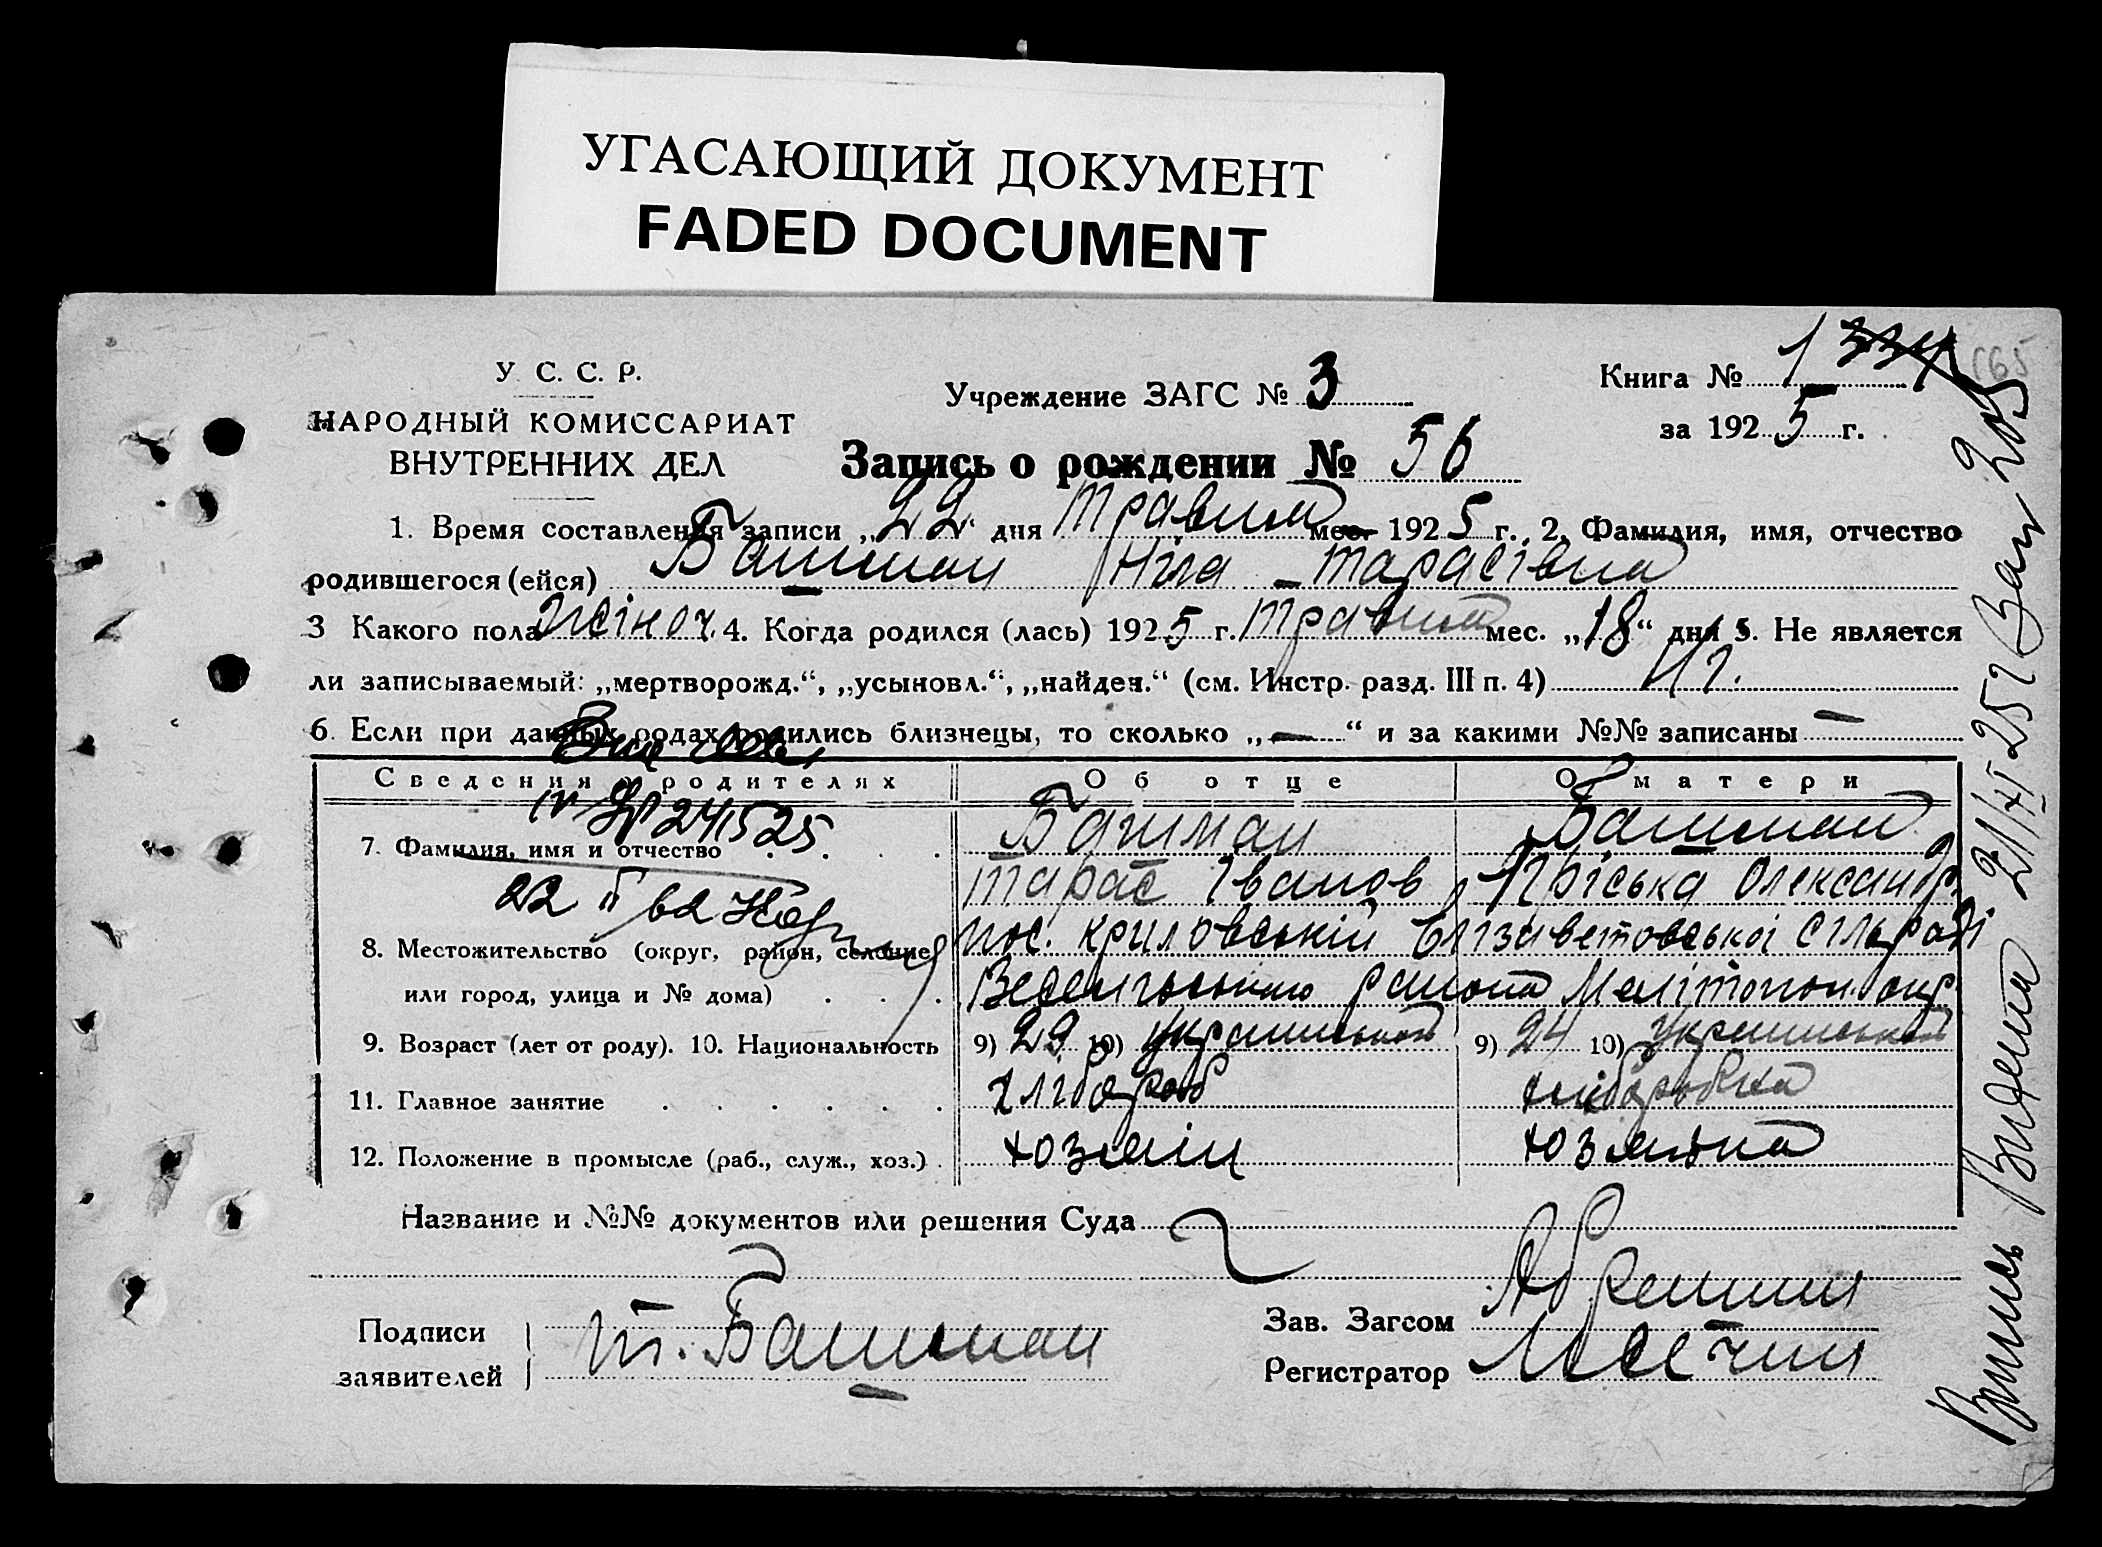 УГАСАЮЩИЙ ДОКУМЕНТ
FADED DOCUMENT
У. С. С. Р.
НАРОДНЫЙ КОМИССАРИАТ
ВНУТРЕННИХ ДЕЛ
Учреждение ЗАГС № 3
Книга № 1 334 165
за 1925 г.
Запись о рождении № 56
1. Время составления записи „22“ дня Травня мес. 1925 г. 2. Фамилия, имя, отчество
родившегося (ейся) Башман Ніла Тарасівна
3 Какого пола жіноч. 4. Когда родился (лась) 1925 г. Травня мес. „18“ дня 5. Не является
ли записываемый: „мертворожд.“, „усыновл.“, „найден.“ (см. Инстр. разд. III п. 4) Ні.
6. Если при данных родах родились близнецы, то сколько „—“ и за какими №№ записаны —
Сведения о родителях Об отце О матери
7. Фамилия, имя и отчество Башман Башман
Тарас Іванов Пріська Олександр.
8. Местожительство (округ, район, селение пос. Криловській Єлізаветовської сільради
или город, улица и № дома) района Мелітопол. окр.
9. Возраст (лет от роду). 10. Национальность 9) 29 10) українськ 9) 24 10) українськ
11. Главное занятие хлібороб хліборобка
12. Положение в промысле (раб., служ., хоз.) хозяїн хозяйка
Название и №№ документов или решения Суда
Подписи
заявителей Т. Башман
Зав. Загсом
Регистратор